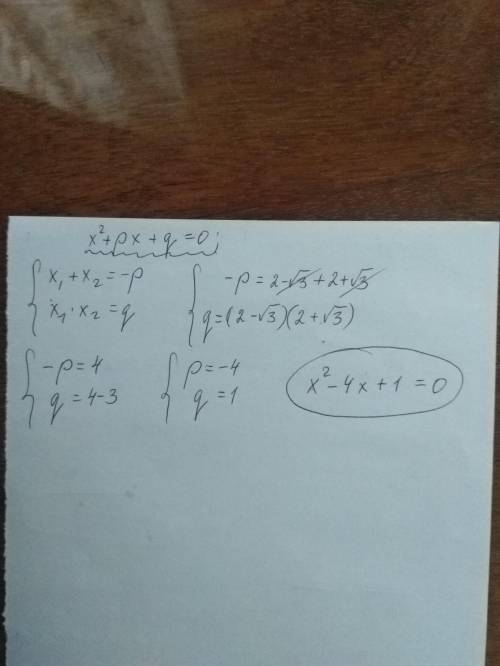 x² + px + q = 0;
{ x₁ + x₂ = -p
x₁ · x₂ = q
{ -p = 2-√3 + 2+√3
q = (2-√3)(2+√3)
{ -p = 4
q = 4-3
{ p = -4
q = 1
x² - 4x + 1 = 0